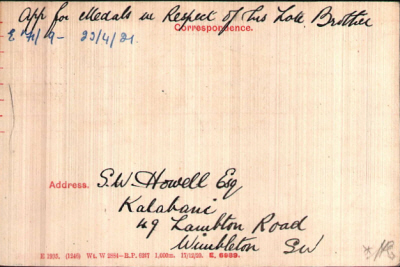 App for Medals in Respect of his late Brother
Correspondence.
E 4/9 - 23/4/21.
Address. S.W. Howell Esq
Kalabani
49 Lambton Road
Wimbleton SW
E 1935. (1240) Wt. W 2884—R.P. 1,000m. 17/12/20. E. 6989.